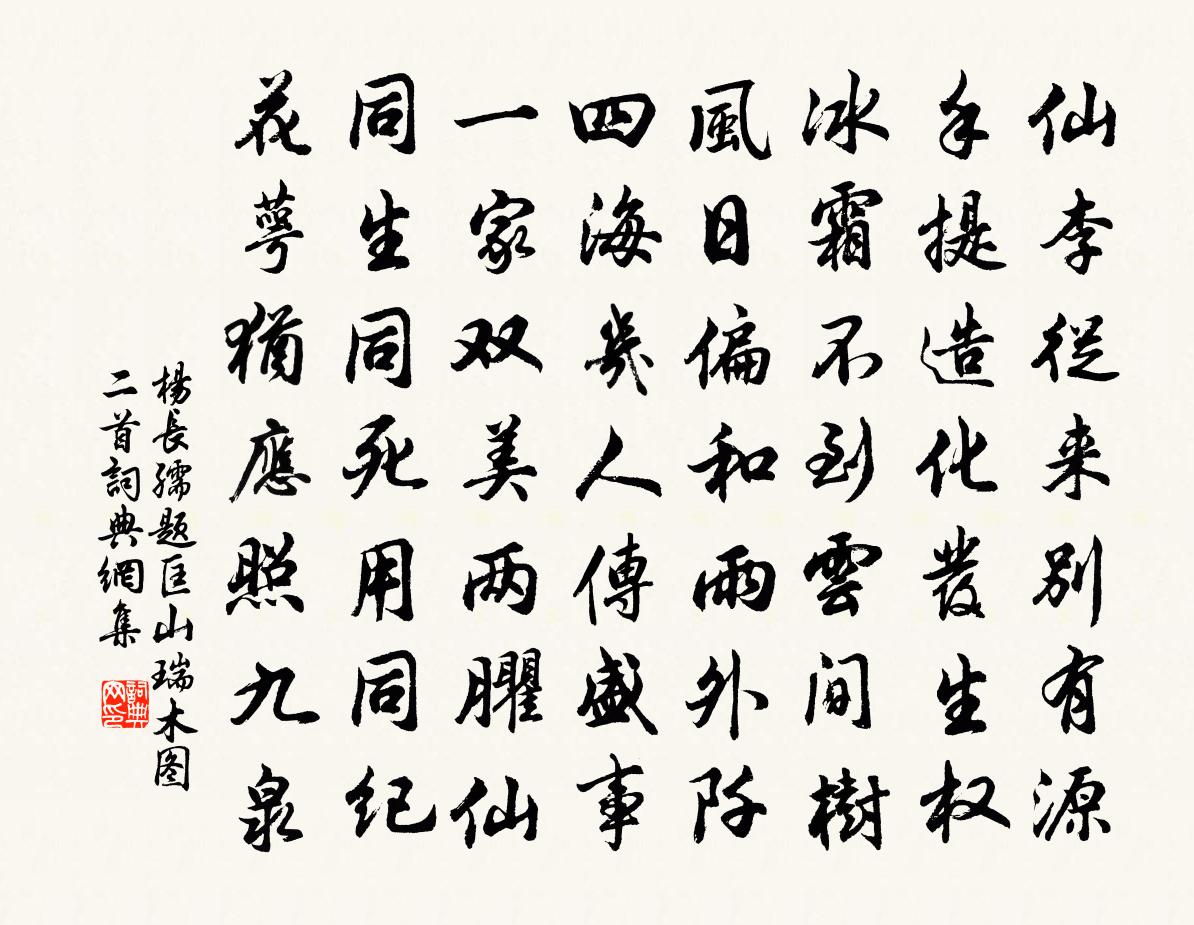 仙李從来别有源
手提造化發生权
冰霜不到雲间樹
風日偏和雨外阡
四海幾人傳盛事
一家双美两臞仙
同生同死用同纪
花萼猶應照九泉
楊長孺题匡山瑞木图
二首詞典網集
詞典
网印